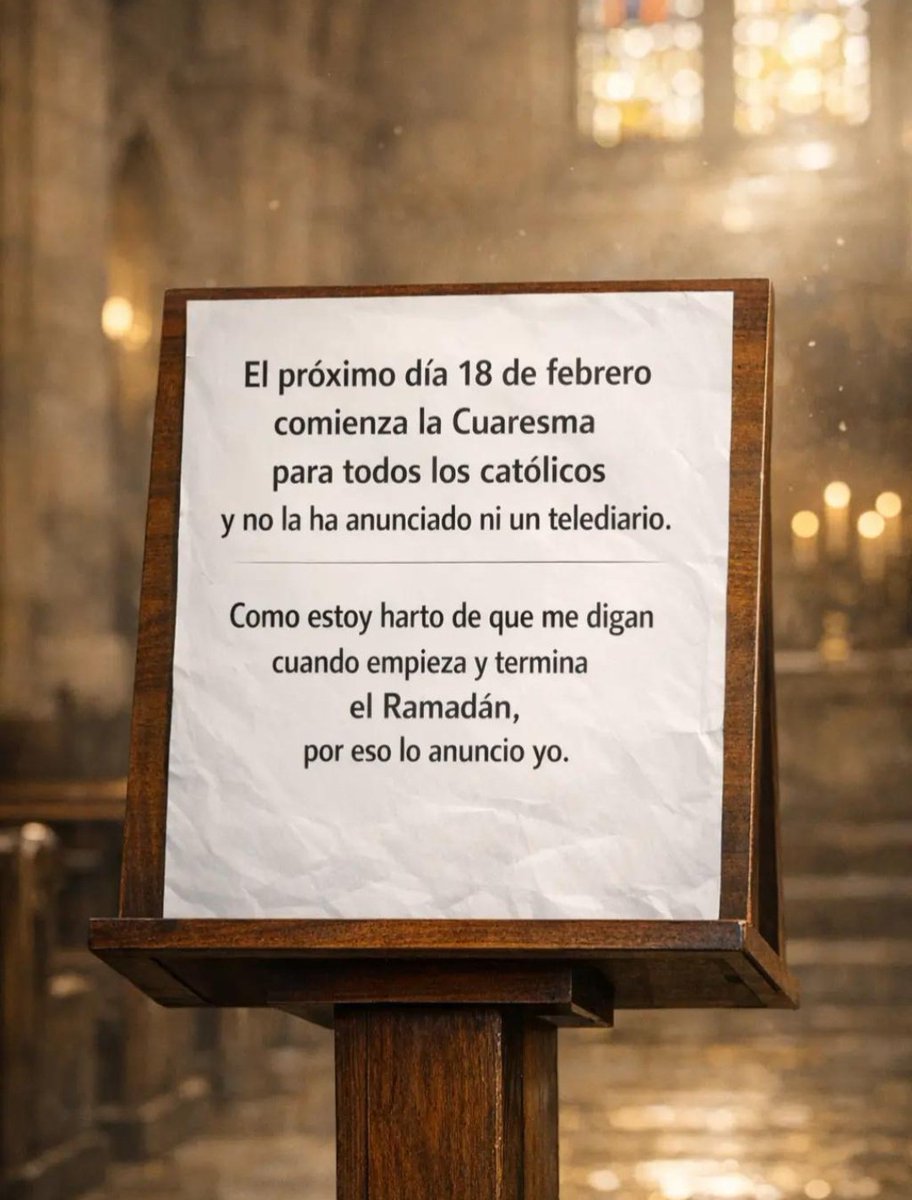 El próximo día 18 de febrero
comienza la Cuaresma
para todos los católicos
y no la ha anunciado ni un telediario.
Como estoy harto de que me digan
cuando empieza y termina
el Ramadán,
por eso lo anuncio yo.